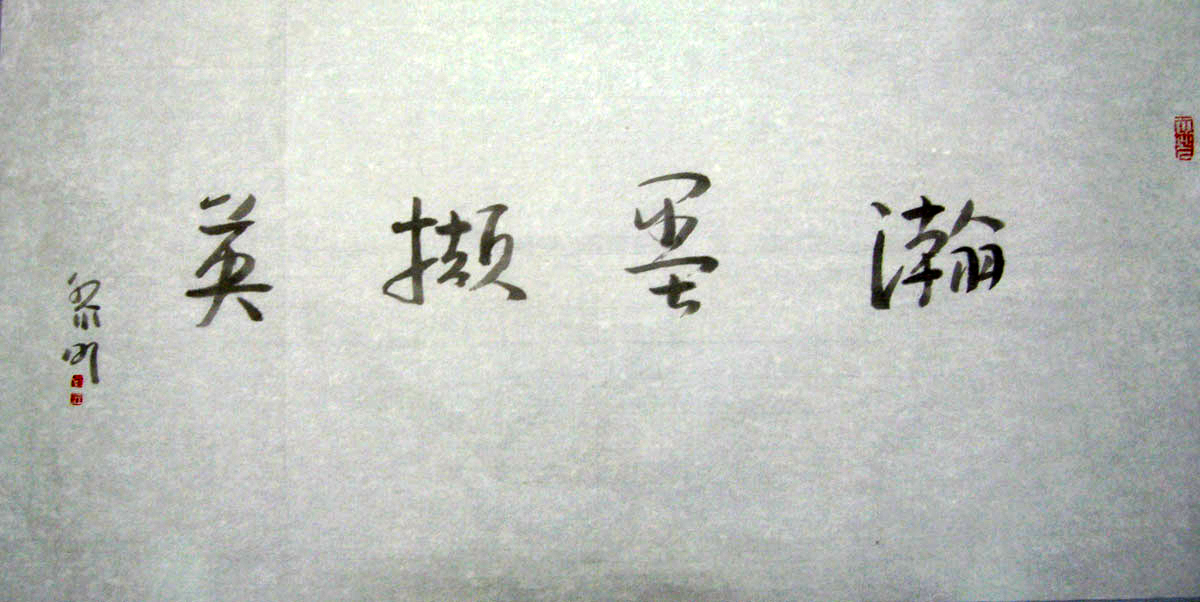 瀚墨撷英
黎明